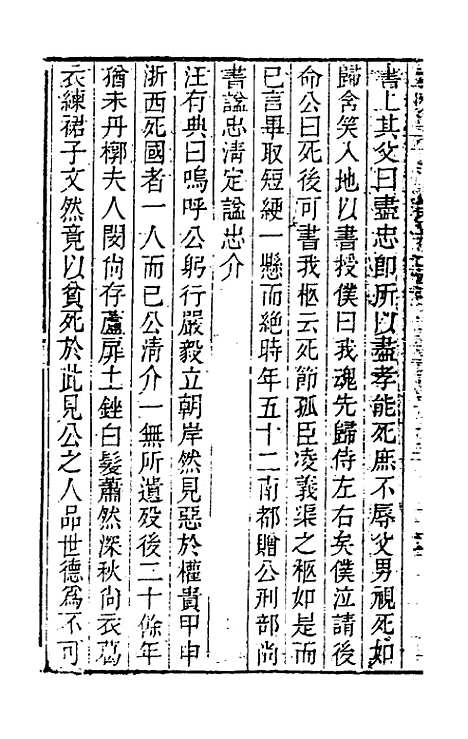 書上其父曰盡忠即所以盡孝能死庶不辱父男視死如
歸含笑入地以書授僕曰我魂先歸侍左右矣僕泣請後
命公曰死後可書我柩云死節孤臣凌義渠之柩如是而
已言畢取短綆一懸而絕時年五十二南都贈公刑部尚
書諡忠清定諡忠介
汪有典曰嗚呼公躬行嚴毅立朝岸然見惡於權貴甲申
浙西死國者一人而已公清介一無所遺歿後二十餘年
猶未丹槨夫人閔尚存蘆扉土銼白髮蕭然深秋尚衣葛
衣練裙子文然竟以貧死於此見公之人品世德為不可